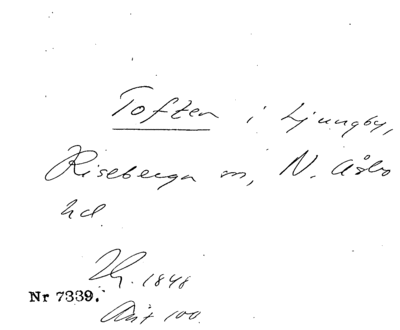 Toften i Ljungby,
Riseberga sn, N. Åsbo
hd.
Th. 1848
Nr 7339.
Ant 100.